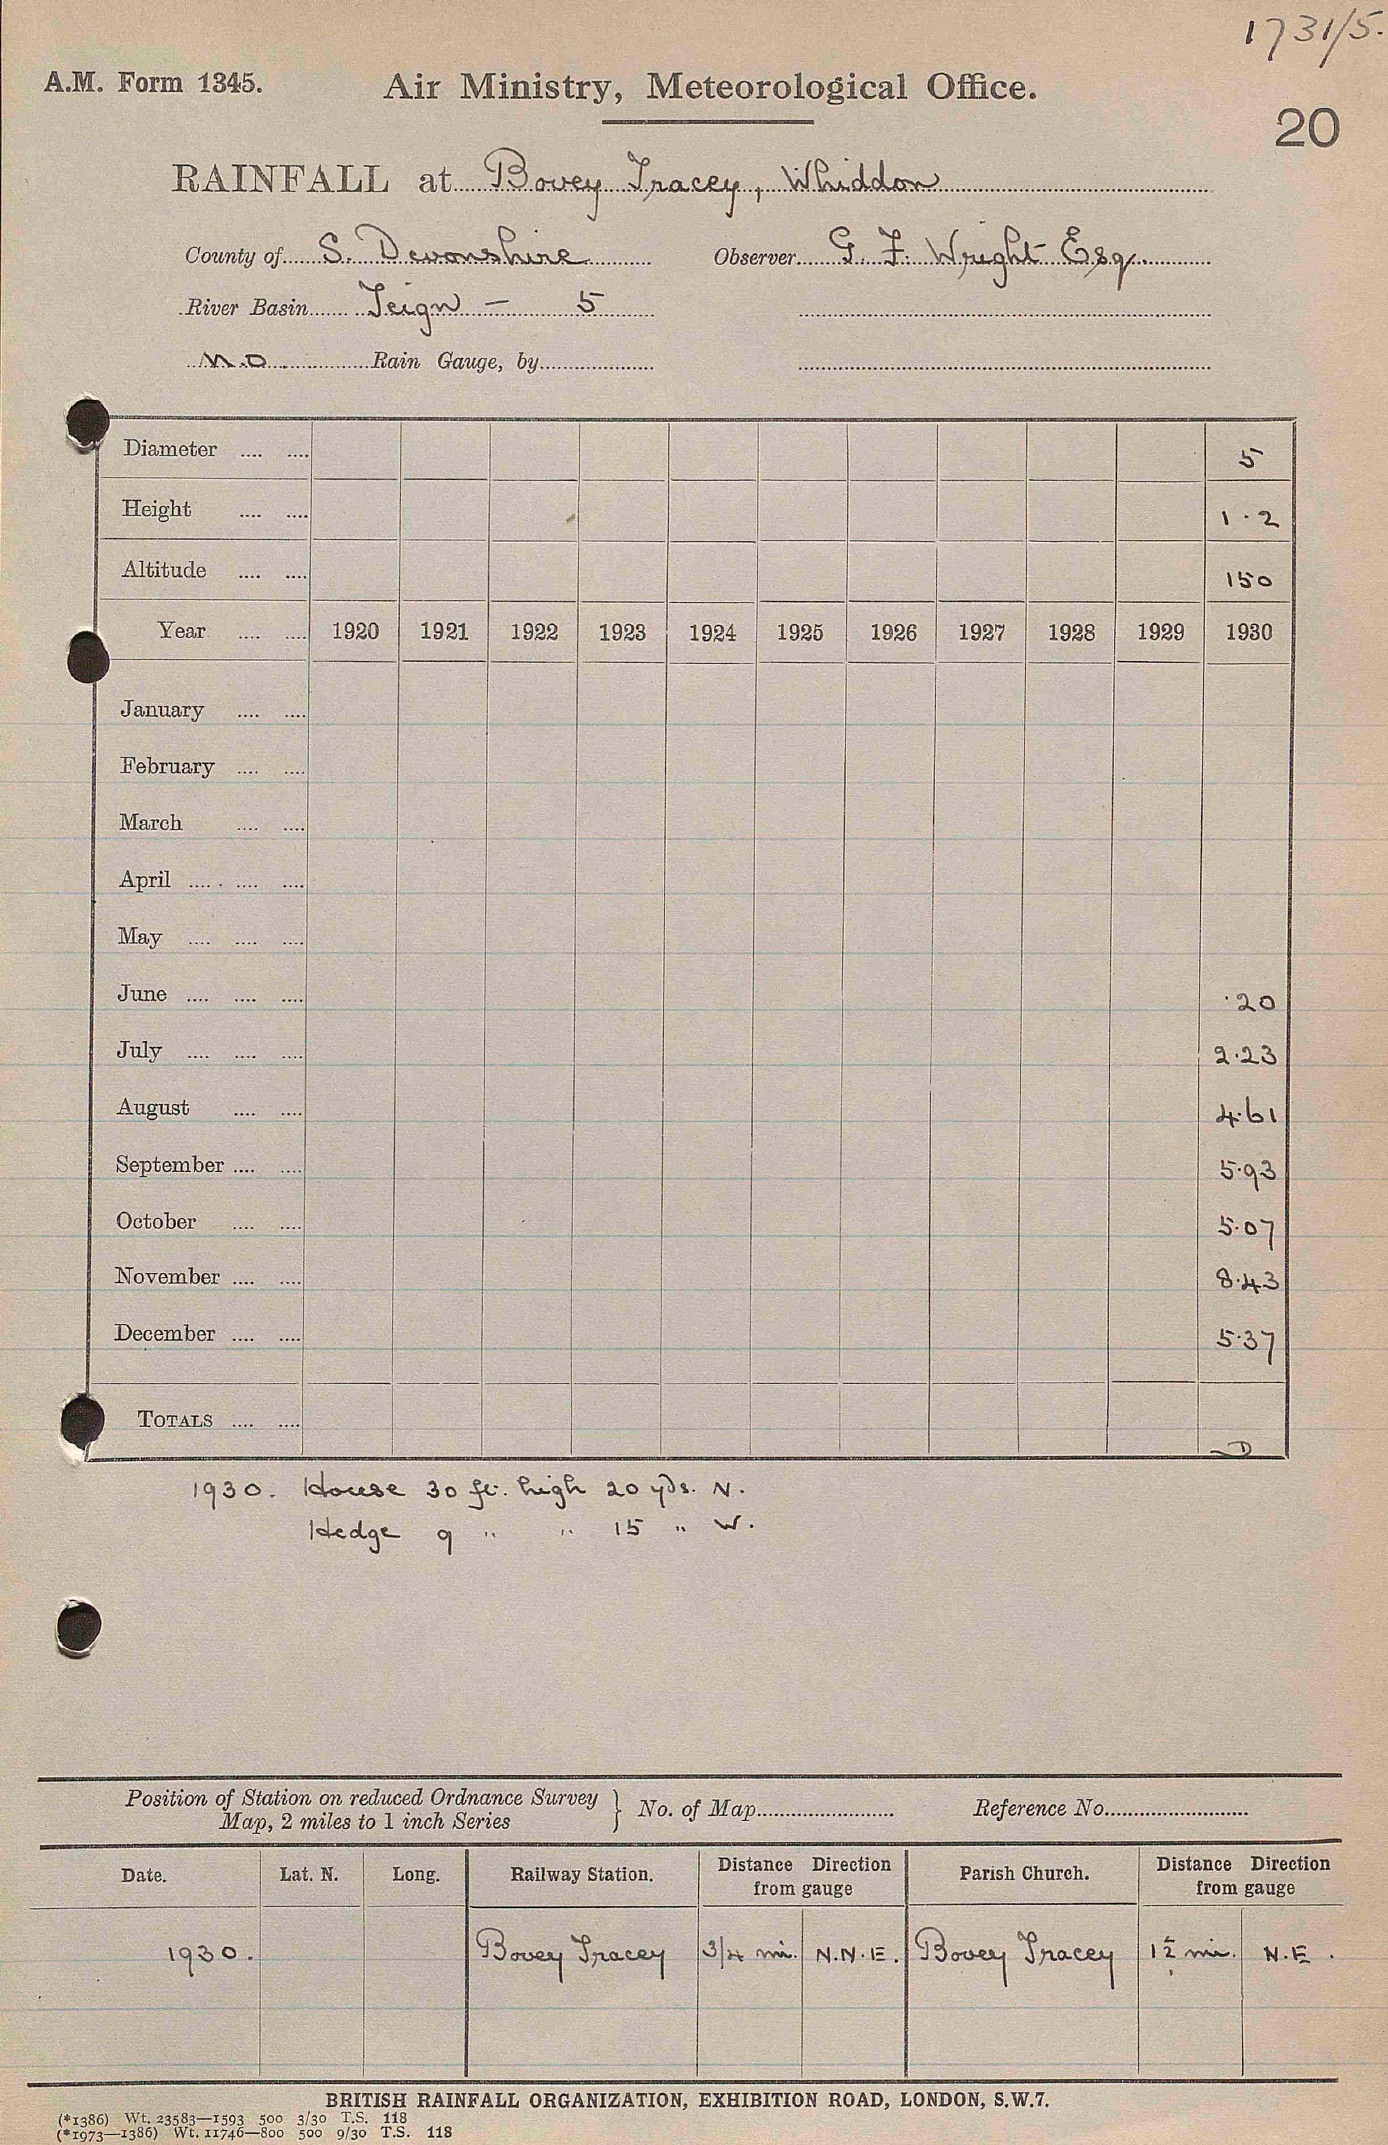 1731/5.
A.M. Form 1345. Air Ministry, Meteorological Office.
20
RAINFALL at Bovey Tracey, Whiddon
County of S. Devonshire Observer G. F. Wright Esq.
River Basin Teign — 5
M.O. Rain Gauge, by
Diameter .... .... 5
Height .... .... 1.2
Altitude .... .... 150
Year .... .... 1920 1921 1922 1923 1924 1925 1926 1927 1928 1929 1930
January .... ....
February .... ....
March .... ....
April .... .... ....
May .... .... ....
June .... .... .... .20
July .... .... .... 2.23
August .... .... 4.61
September .... .... 5.93
October .... .... 5.07
November .... .... 8.43
December .... .... 5.37
TOTALS .... .... D
1930. House 30 ft. high 20 yds. N.
Hedge 9 " " 15 " W.
Position of Station on reduced Ordnance Survey
Map, 2 miles to 1 inch Series } No. of Map Reference No.
Date. Lat. N. Long. Railway Station. Distance Direction from gauge Parish Church. Distance Direction from gauge
1930. Bovey Tracey 3/4 mi. N.N.E. Bovey Tracey 1½ mi. N.E.
BRITISH RAINFALL ORGANIZATION, EXHIBITION ROAD, LONDON, S.W.7.
(*1386) Wt. 23583—1593 500 3/30 T.S. 118
(*1973—1386) Wt. 11746—800 500 9/30 T.S. 118